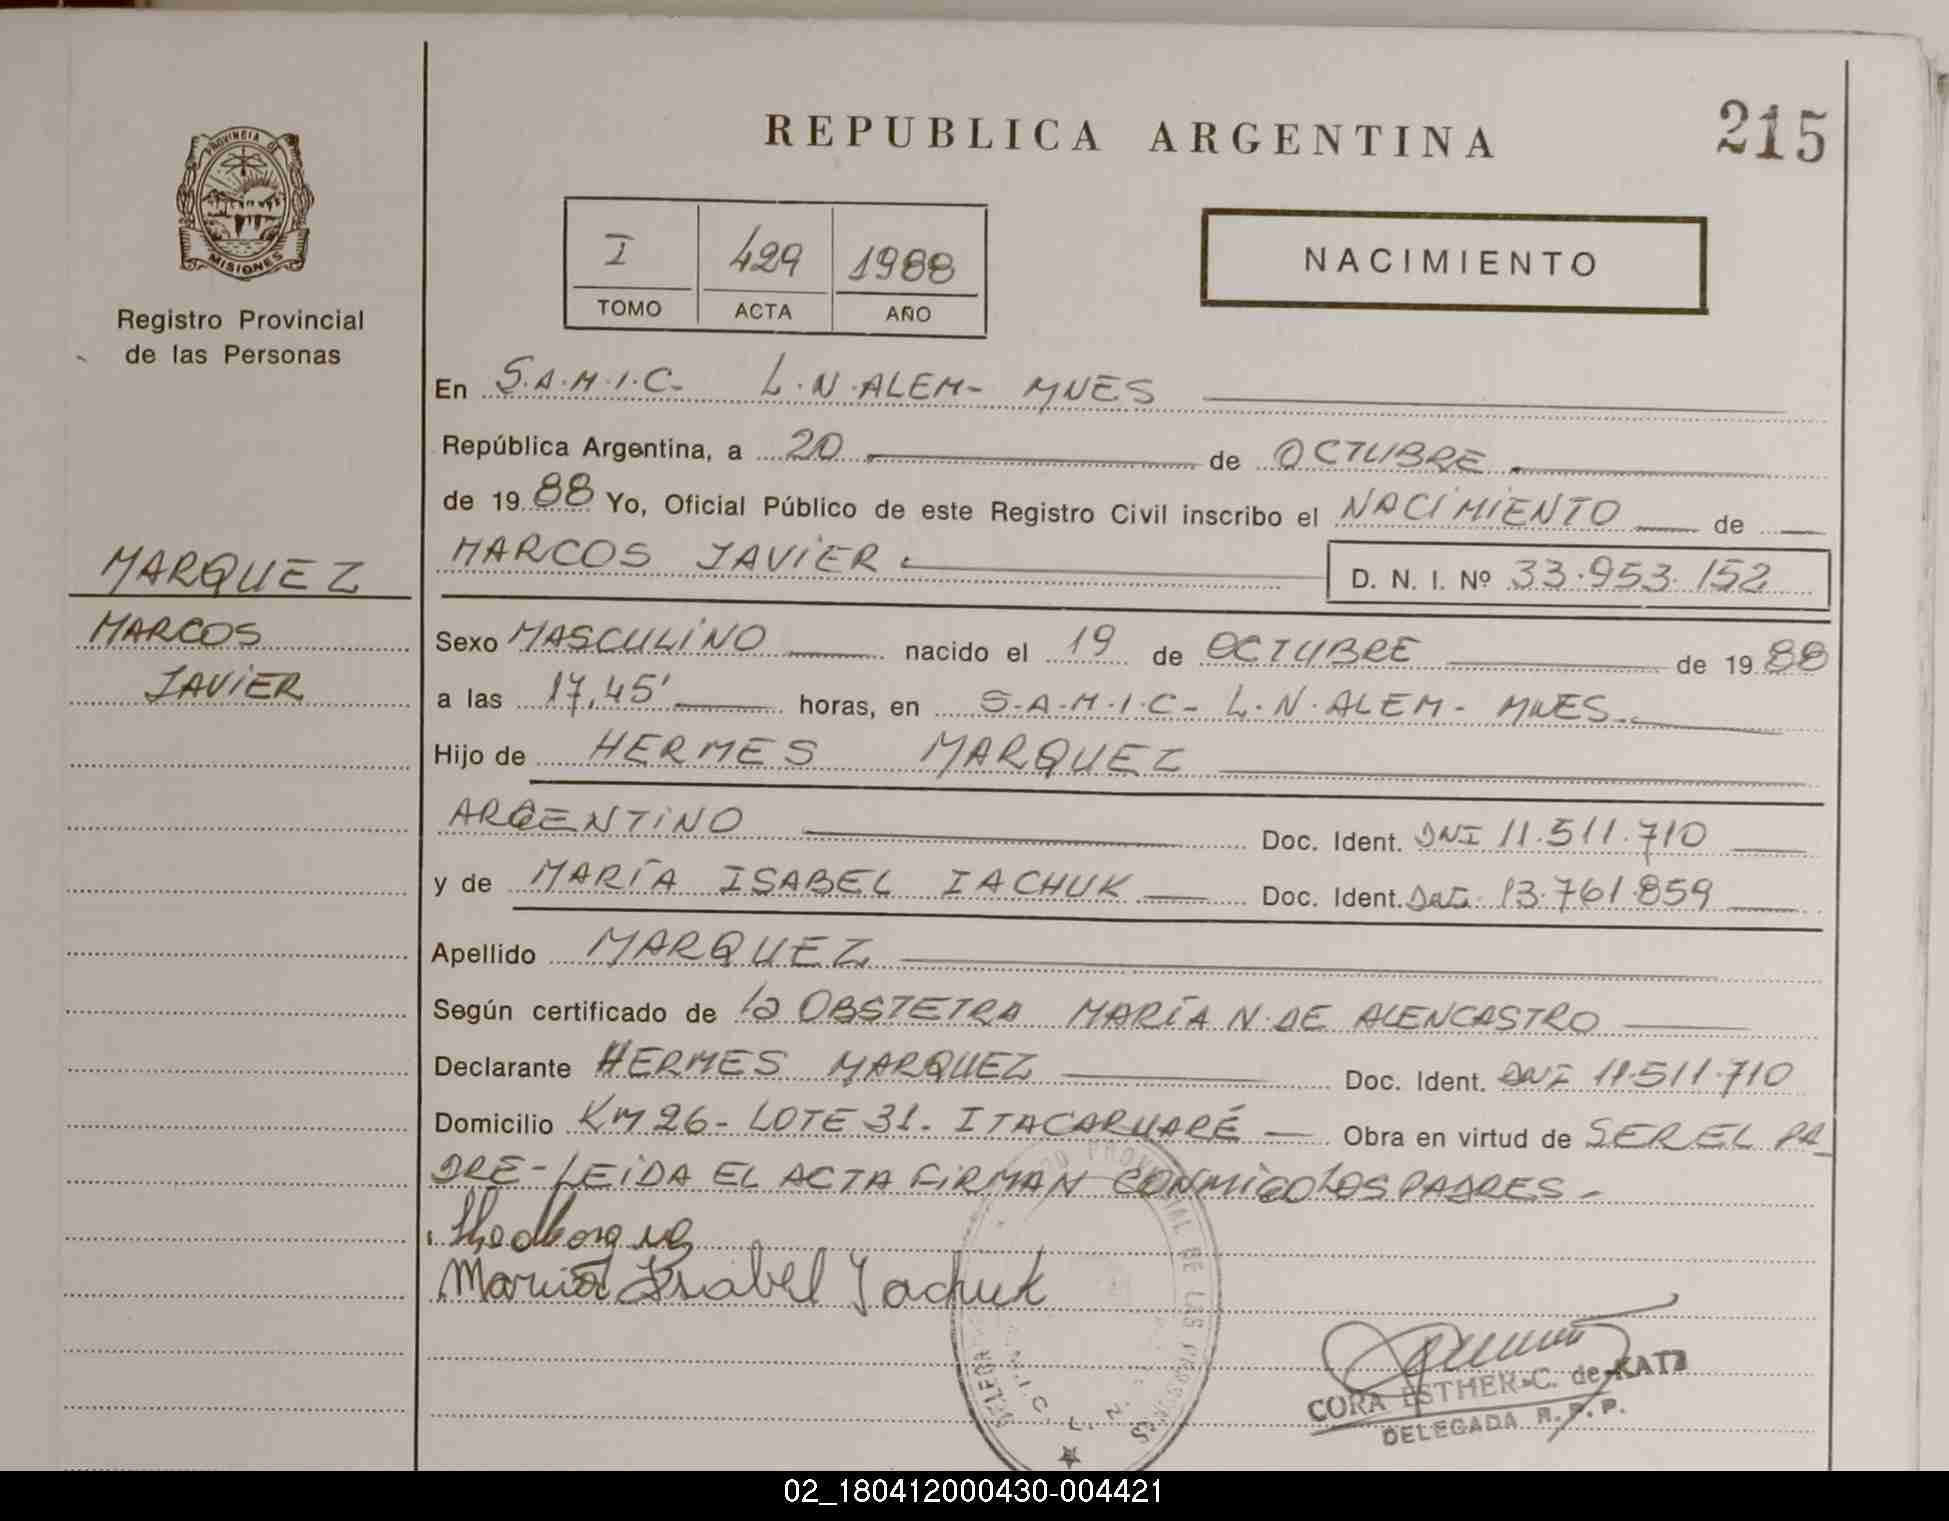 REPUBLICA ARGENTINA
215
PROVINCIA DE
MISIONES
Registro Provincial
de las Personas
I 429 1988
TOMO ACTA AÑO
NACIMIENTO
En S.A.M.I.C- L.N.ALEM- MNES
República Argentina, a 20 de OCTUBRE
de 1988 Yo, Oficial Público de este Registro Civil inscribo el NACIMIENTO de
MARCOS JAVIER D. N. I. Nº 33.953.152
MARQUEZ
MARCOS
JAVIER
Sexo MASCULINO nacido el 19 de OCTUBRE de 1988
a las 17,45' horas, en S.A.M.I.C- L.N.ALEM- MNES.
Hijo de HERMES MARQUEZ
ARGENTINO Doc. Ident. DNI 11.511.710
y de MARÍA ISABEL IACHUK Doc. Ident. DNI 13.761.859
Apellido MARQUEZ
Según certificado de la OBSTETRA MARÍA N. DE ALENCASTRO
Declarante HERMES MARQUEZ Doc. Ident. DNI 11.511.710
Domicilio KM 26- LOTE 31- ITACARUARÉ Obra en virtud de SER EL PA_
DRE-LEIDA EL ACTA FIRMAN CONMIGO LOS PADRES-
Maria Isabel Iachuk
PROVINCIAL DE LAS PERSONAS
CORA ESTHER C. de KATZ
DELEGADA R.P.P.
02_180412000430-004421